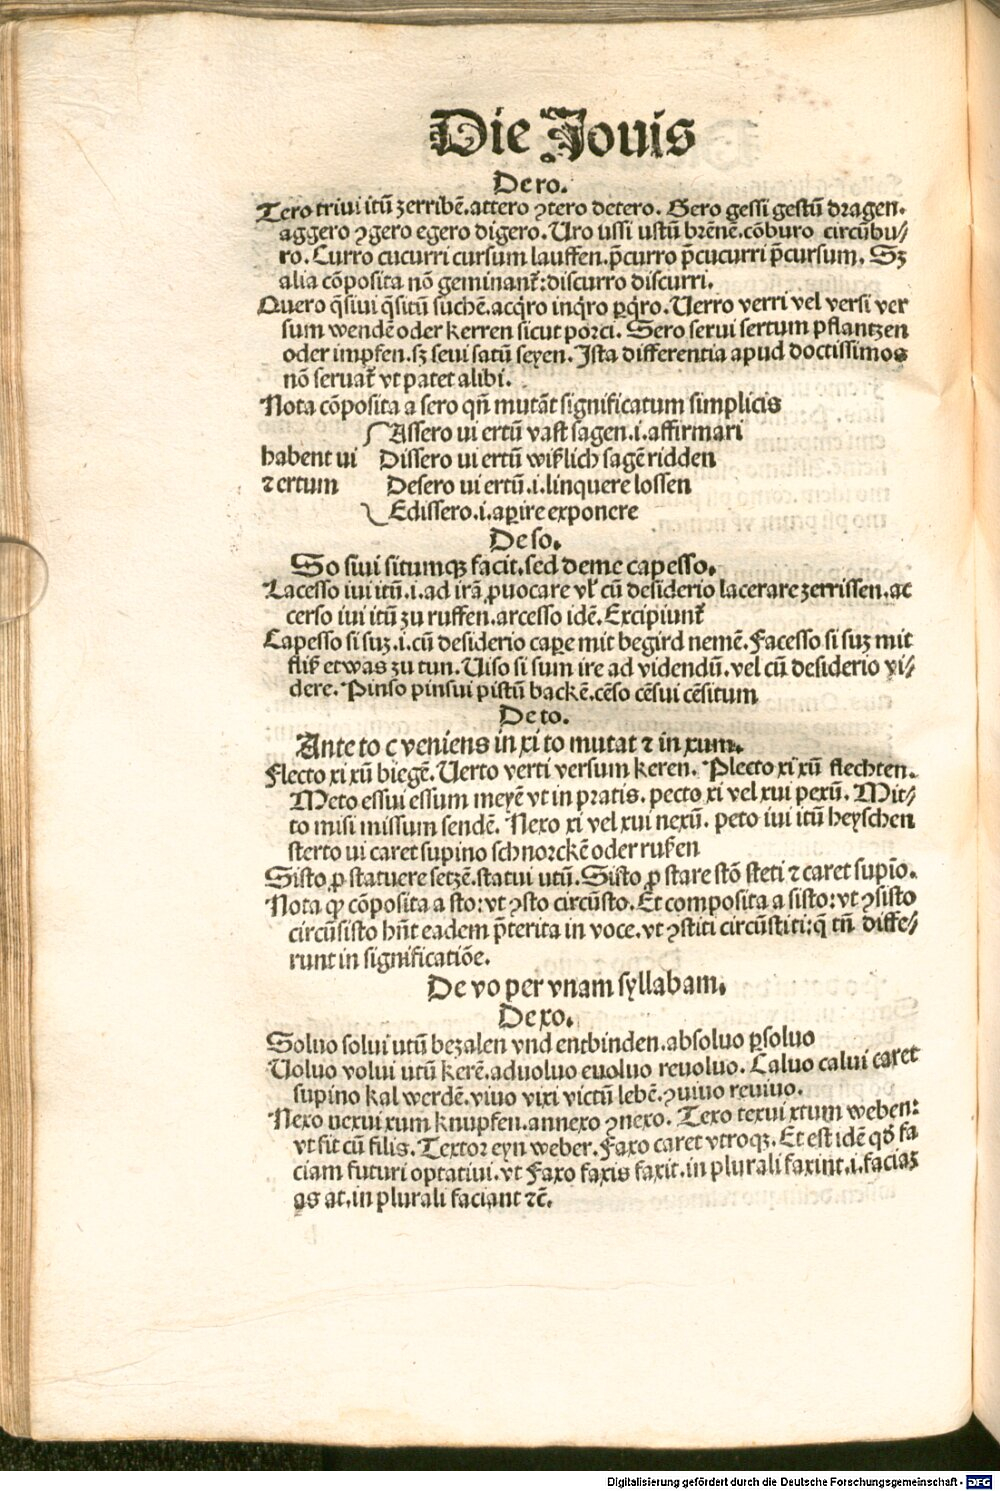 Die Jouis
De ro.
Tero trivi itū zerribē. attero ꝯtero detero. Gero gessi gestū dragen.
aggero ꝯgero egero digero. Uro ussi ustū brēnē. cōburo circūbu/
ro. Curro cucurri cursum lauffen. p̄curro p̄cucurri p̄cursum. Sꝫ
alia cōposita nō geminant᷑: discurro discurri.
Quero q̄siui q̄sitū suchē. acq̄ro inq̄ro ꝑq̄ro. Uerro verri vel versi ver
sum wendē oder kerren sicut porci. Sero serui sertum pflantzen
oder impfen. sꝫ seui satū seyen. Ista differentia apud doctissimos
nō seruat᷑ vt patet alibi.
Nota cōposita a sero qn̄ mutāt significatum simplicis
Assero ui ertū vast sagen .i. affirmari
habent ui Dissero ui ertū wißlich sagē ridden
⁊ ertum Desero ui ertū .i. linquere lossen
Edissero .i. aperire exponere
De so.
So siui situmqꝫ facit. sed deme capesso.
Lacesso iui itū .i. ad irā ꝓuocare vl̕ cū desiderio lacerare zerrissen. ac
cerso iui itū zu ruffen. arcesso idē. Excipiunt᷑
Capesso si suꝫ .i. cū desiderio capere mit begird nemē. Facesso si suꝫ mit
fliß etwas zu tun. Uiso si sum ire ad videndū. vel cū desiderio vi/
dere. Pinso pinsui pistū backē. cēso cēsui cēsitum
De to.
Ante to c veniens in xi to mutat ⁊ in xum.
Flecto xi xū biegē. Uerto verti versum keren. Plecto xi xū flechten.
Meto essui essum meyē vt in pratis. pecto xi vel xui pexū. Mit/
to misi missum sendē. Nexo xi vel xui nexū. peto iui itū heyschen
sterto ui caret supino schnorckē oder rußen
Sisto ꝓ statuere setzē. statui utū. Sisto ꝓ stare stō steti ⁊ caret supīo.
Nota ꝙ cōposita a sto: vt ꝯsto circūsto. Et composita a sisto: vt ꝯsisto
circūsisto hn̄t eadem p̄terita in voce. vt ꝯstiti circūstiti: q̄ tn̄ diffe/
runt in significatiōe.
De vo per vnam syllabam.
De xo.
Soluo solui utū bezalen vnd entbinden. absoluo ꝑsoluo
Uoluo volui utū kerē. aduoluo euoluo reuoluo. Caluo calui caret
supino kal werdē. viuo vixi victū lebē. ꝯuiuo reuiuo.
Nexo nexui xum knupfen. annexo ꝯnexo. Texo texui xtum weben:
vt fit cū filis. Textor eyn weber. Faxo caret vtroqꝫ. Et est idē qđ fa
ciam futuri optatiui. vt Faxo faxis faxit. in plurali faxint .i. faciaꝫ
as at. in plurali faciant ⁊c̄.
Digitalisierung gefördert durch die Deutsche Forschungsgemeinschaft - DFG